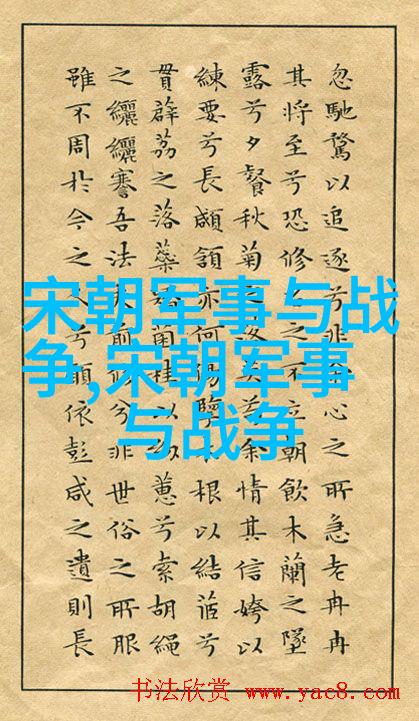 忽馳騖以追逐兮非心之所急老冉冉
其將至兮恐修之不立朝飲木蘭之墜
露兮夕餐秋菊落英兮余情其信姱以
練要兮長顑頷亦何傷擥根以結茝兮
貫薜荔之落蘂矯菌桂以蕙兮索胡繩
之纚纚謇吾法夫前修兮非世俗之所服
雖不周於今之兮願依彭咸之遺則長
宋朝军事与战
争,宋朝军事
与战争
书法欣赏 www.yac8.com